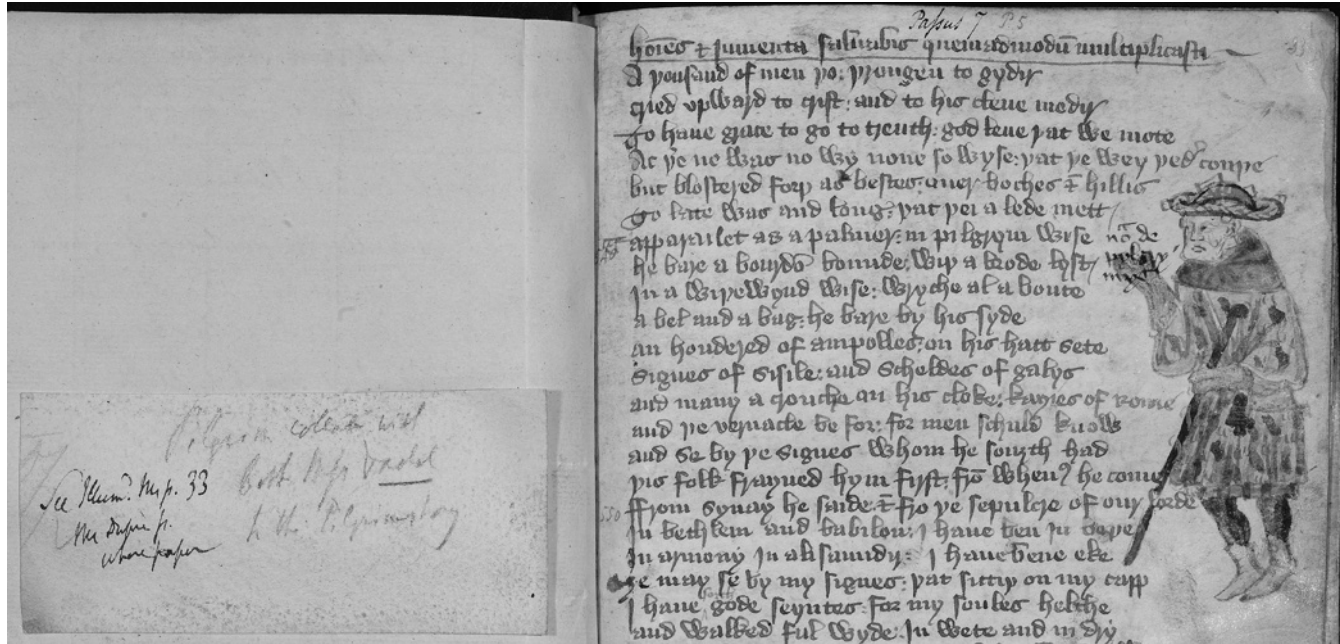 Pilgrim collate with
both Mss
See Illumd. Ms p. 33
to the Pilgrims
Passus 7 P. 5
hoīes & iumenta saluabis quemadmodū multiplicasti
A þousand of men þo: þrongen to gydir
cried vpward to crist: and to his clene modir
To haue grace to go to treuth: god leue þat we mote
Ac þe ne was no wy none so wyse: þat þe wey þedʳ couþe
but blostered forþ as bestes: ouer boches & hillis
To late was and long: þat þei a lede mett
apparailet as a palmer: in pilgrym wise
nōᵃ de
he bare a bourdō bounde: wiþ a brode lyst
In a wiþewynd wise: wryche al a boute
a bel and a bag: he bare by his syde
an hondered of ampolles: on his hatt sete
signes of sisile: and scheldes of galys
and many a crouche on his cloke: kayies of rome
and þe vernacle be for: for men schuld knowe
and se by þe signes whom he southt had
þis folk frayned hym first: frō whenˀ he come
550 ffrom synay he saide: & fro þe sepulcre of our lorde
In bethlem and babilon: I haue ben in
In armony In alisaundyr: I haue bene eke
ȝe may se by my signes: þat sittiþ on my capp
I haue gode seyntes: for my soules helthe
and walked ful wyde: In wete and in dry